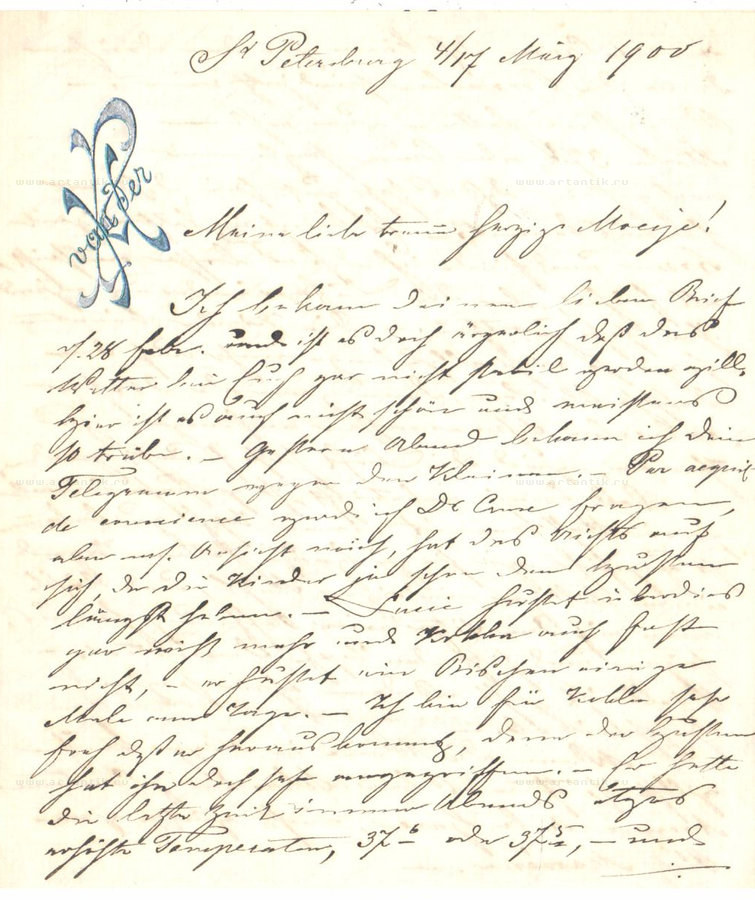 St Petersburg 4/17 März 1900
van der
Meine liebe herzige
Ich bekam deinen lieben Brief
v. 28 Febr. und ist es doch ärgerlich daß das
Wetter bei Euch gar nicht stabil werden will.
Hier ist es auch nicht schön und meistens
so trübe. – Gestern Abend bekam ich dein
Telegramm wegen den Kleinen. – Par acquit
de conscience werde ich Dr fragen,
aber m. Ansicht nach, hat das Nichts auf
sich, da die Kinder ja schon den Husten
längst haben. – Lucie hustet überdies
gar nicht mehr und auch fast
nicht, – er hustet ein Bischen einige
Male am Tage. – Ich bin für sehr
froh daß er herauskommt, denn der Husten
hat ihn doch sehr angegriffen. – Er hatte
die letzte Zeit immer Abends etwas
erhöhte Temperatur, 37 oder 37, – und
www.artantik.ru www.artantik.ru
www.artantik.ru www.artantik.ru
www.artantik.ru www.artantik.ru